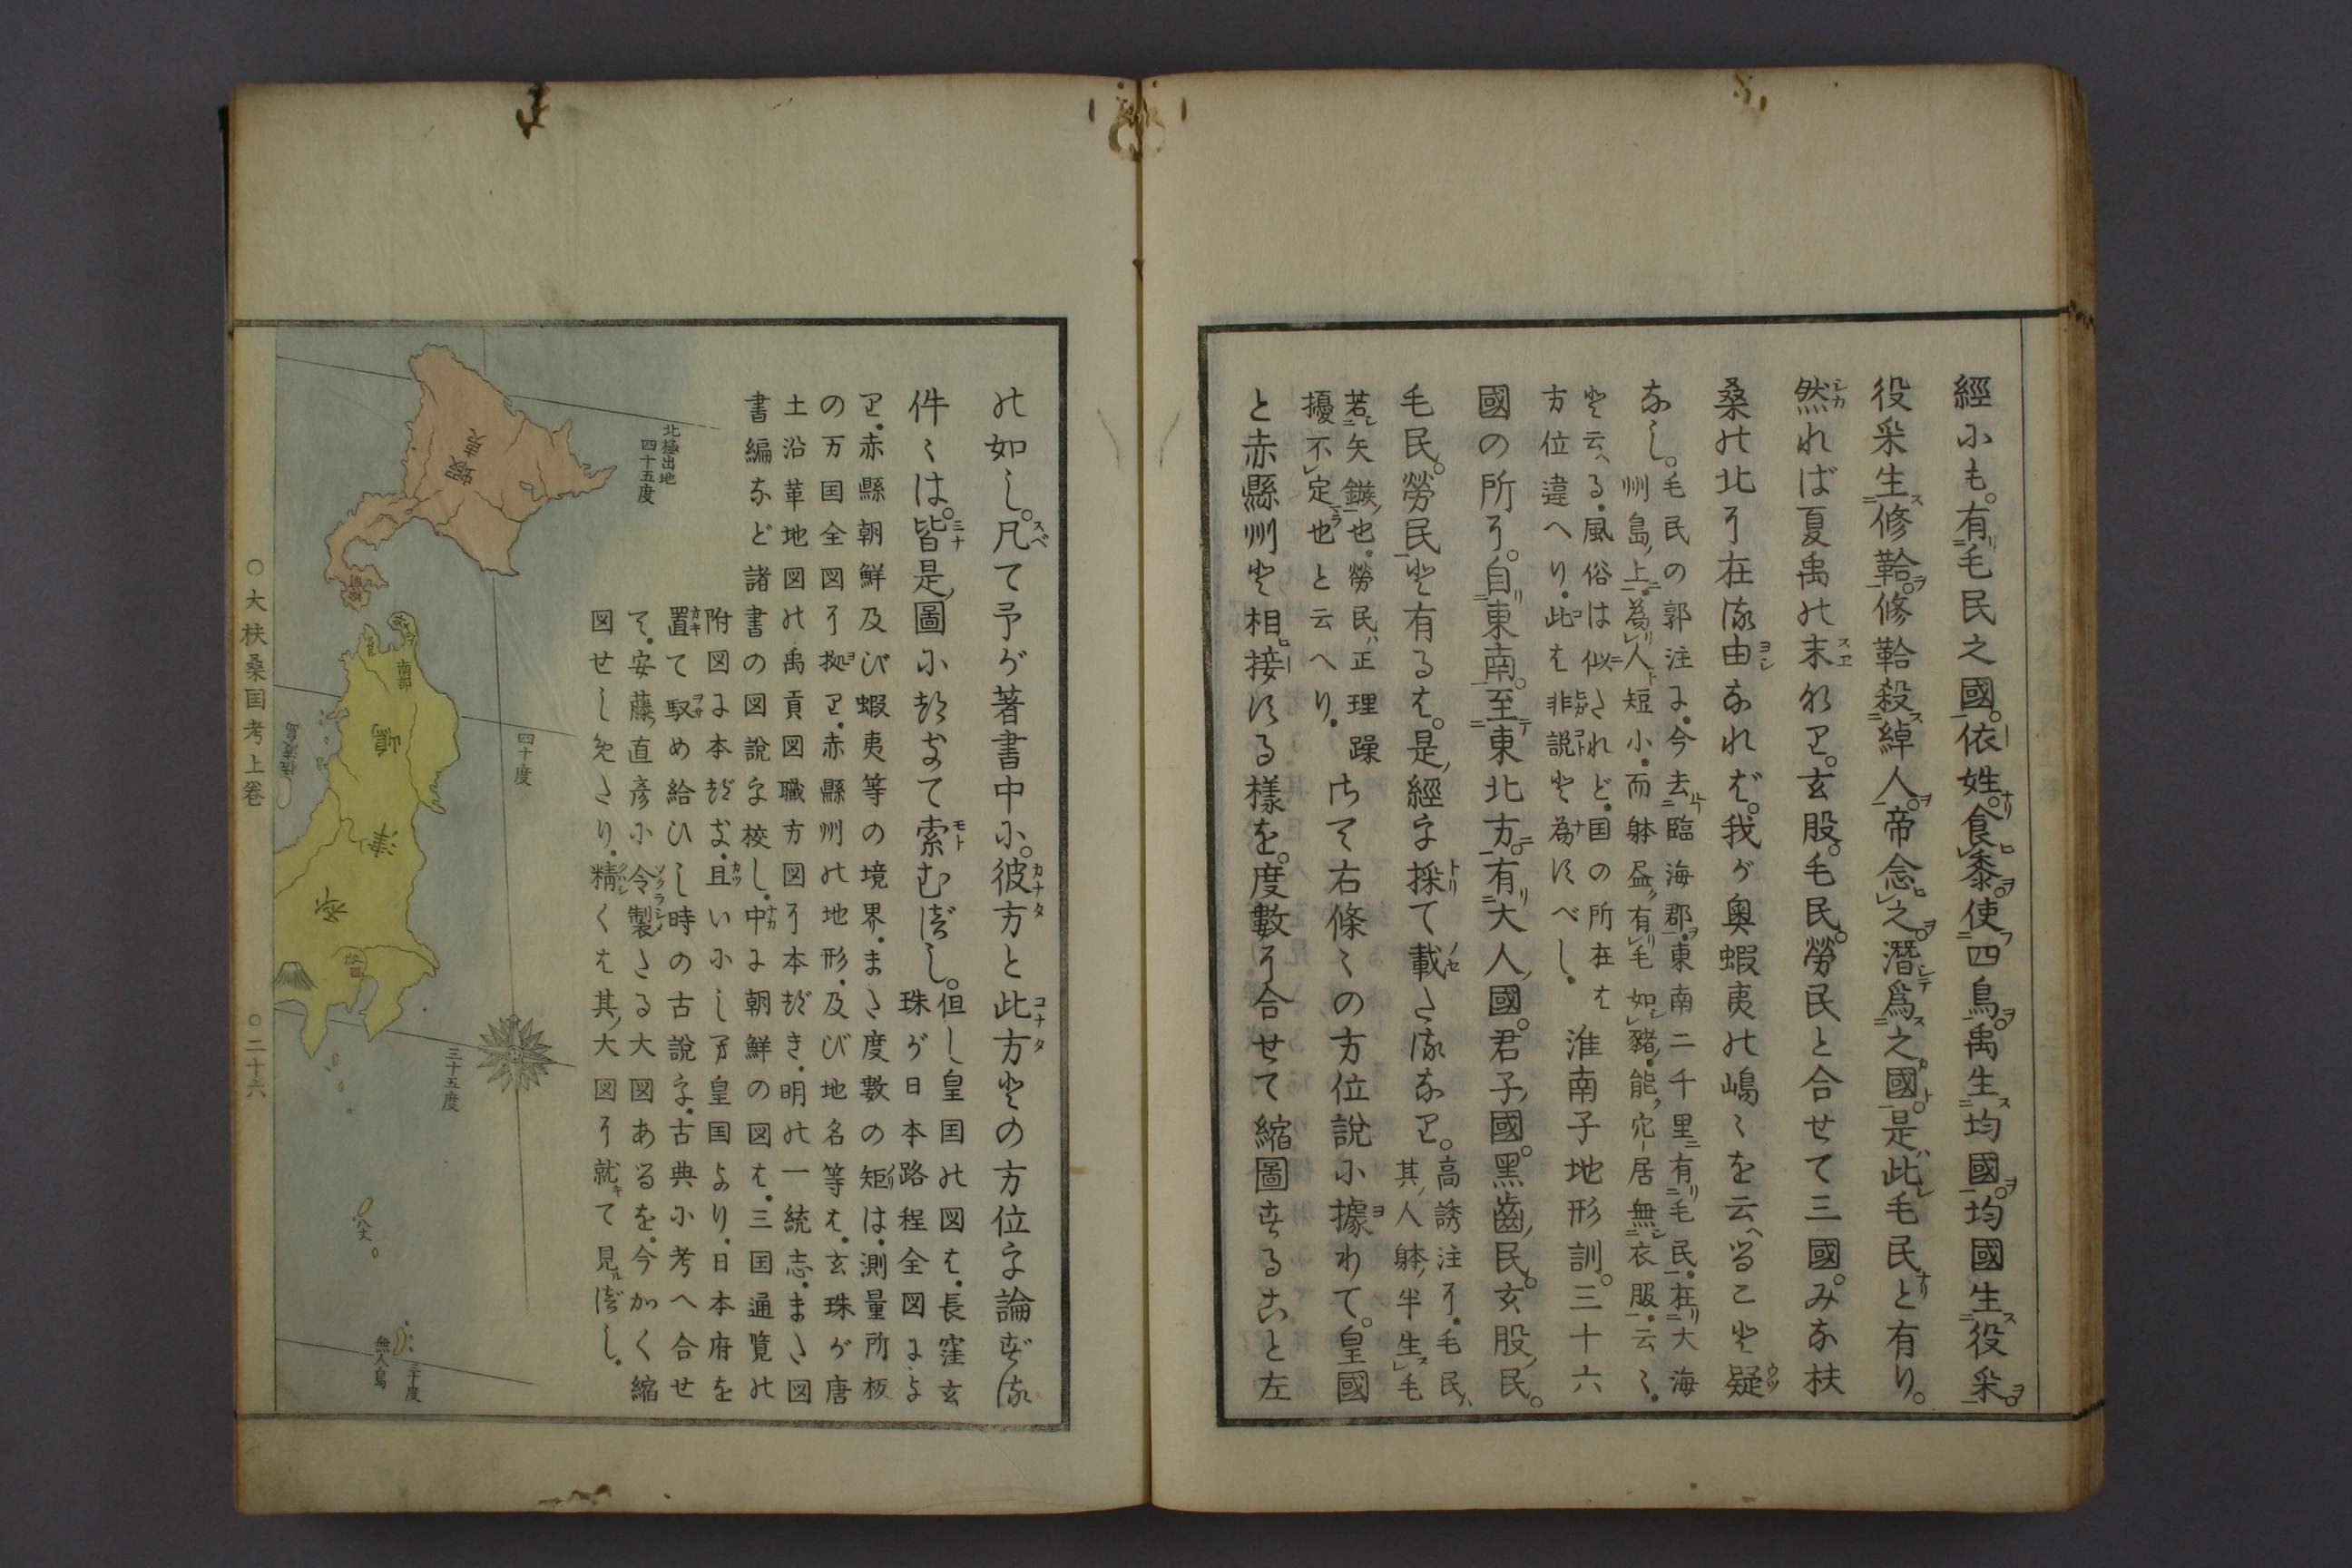 經にも。有毛民之國。依姓。食黍。使四鳥。禹生均國。均國生役采。
役采生修鞈。修鞈殺綽人。帝念之。潛爲之國。是此毛民と有り。
然れば夏禹の末なり。玄股。毛民。勞民と合せて三國。みな扶
桑の北に在る由なれば。我が奥蝦夷の嶋〻を云へるこ𛁈疑
なし。
毛民の郭注に。今去臨海郡。東南二千里。有毛民。在大海
州島上。為人短小。而躰尽有毛。如豬。能穴居無衣服。云〻。
と云へる。風俗は似されど。国の所在は
方位違へり。此は非說と為べし。
淮南子地形訓。三十六
國の所に。自東南。至東北方。有大人國。君子國。黑齒民。玄股民。
毛民。勞民と有るは。是經を採て載たるなり。
高誘注に。毛民
其人躰半生毛
若矢鏃也。勞民正理躁
擾不定也と云へり。
さて右條〻の方位說に據りて。皇國
と赤縣州と相接る樣を。度數に合せて縮圖することと左
の如し。凡て予が著書中に。彼方と此方との方位を論ずる
件〻は。皆是圖に就て索むべし。
但し皇国の図は。長窪玄
珠が日本路程全図に
り。赤縣朝鮮及び蝦夷等の境界。また度數の矩は。測量所板
の万国全図に拠り。赤縣州の地形。及び地名等は。玄珠が唐
土沿革地図の禹貢図職方図に本づき。明の一統志。また図
書編など諸書の図說を校し。中に朝鮮の図は。三国通覽の
附図に本づき。且いにし方皇国より。日本府を
置て馭め給ひし時の古說を。古典に考へ合せ
て。安藤直彥に令製たる大図あるを。今かく縮
図せしめたり。精くは其大図に就て見べし。
北極出地
四十五度
蝦夷
南部
四十度
佐渡島
三十五度
八丈
三十度
無人島
○大扶桑国考上卷
○二十六